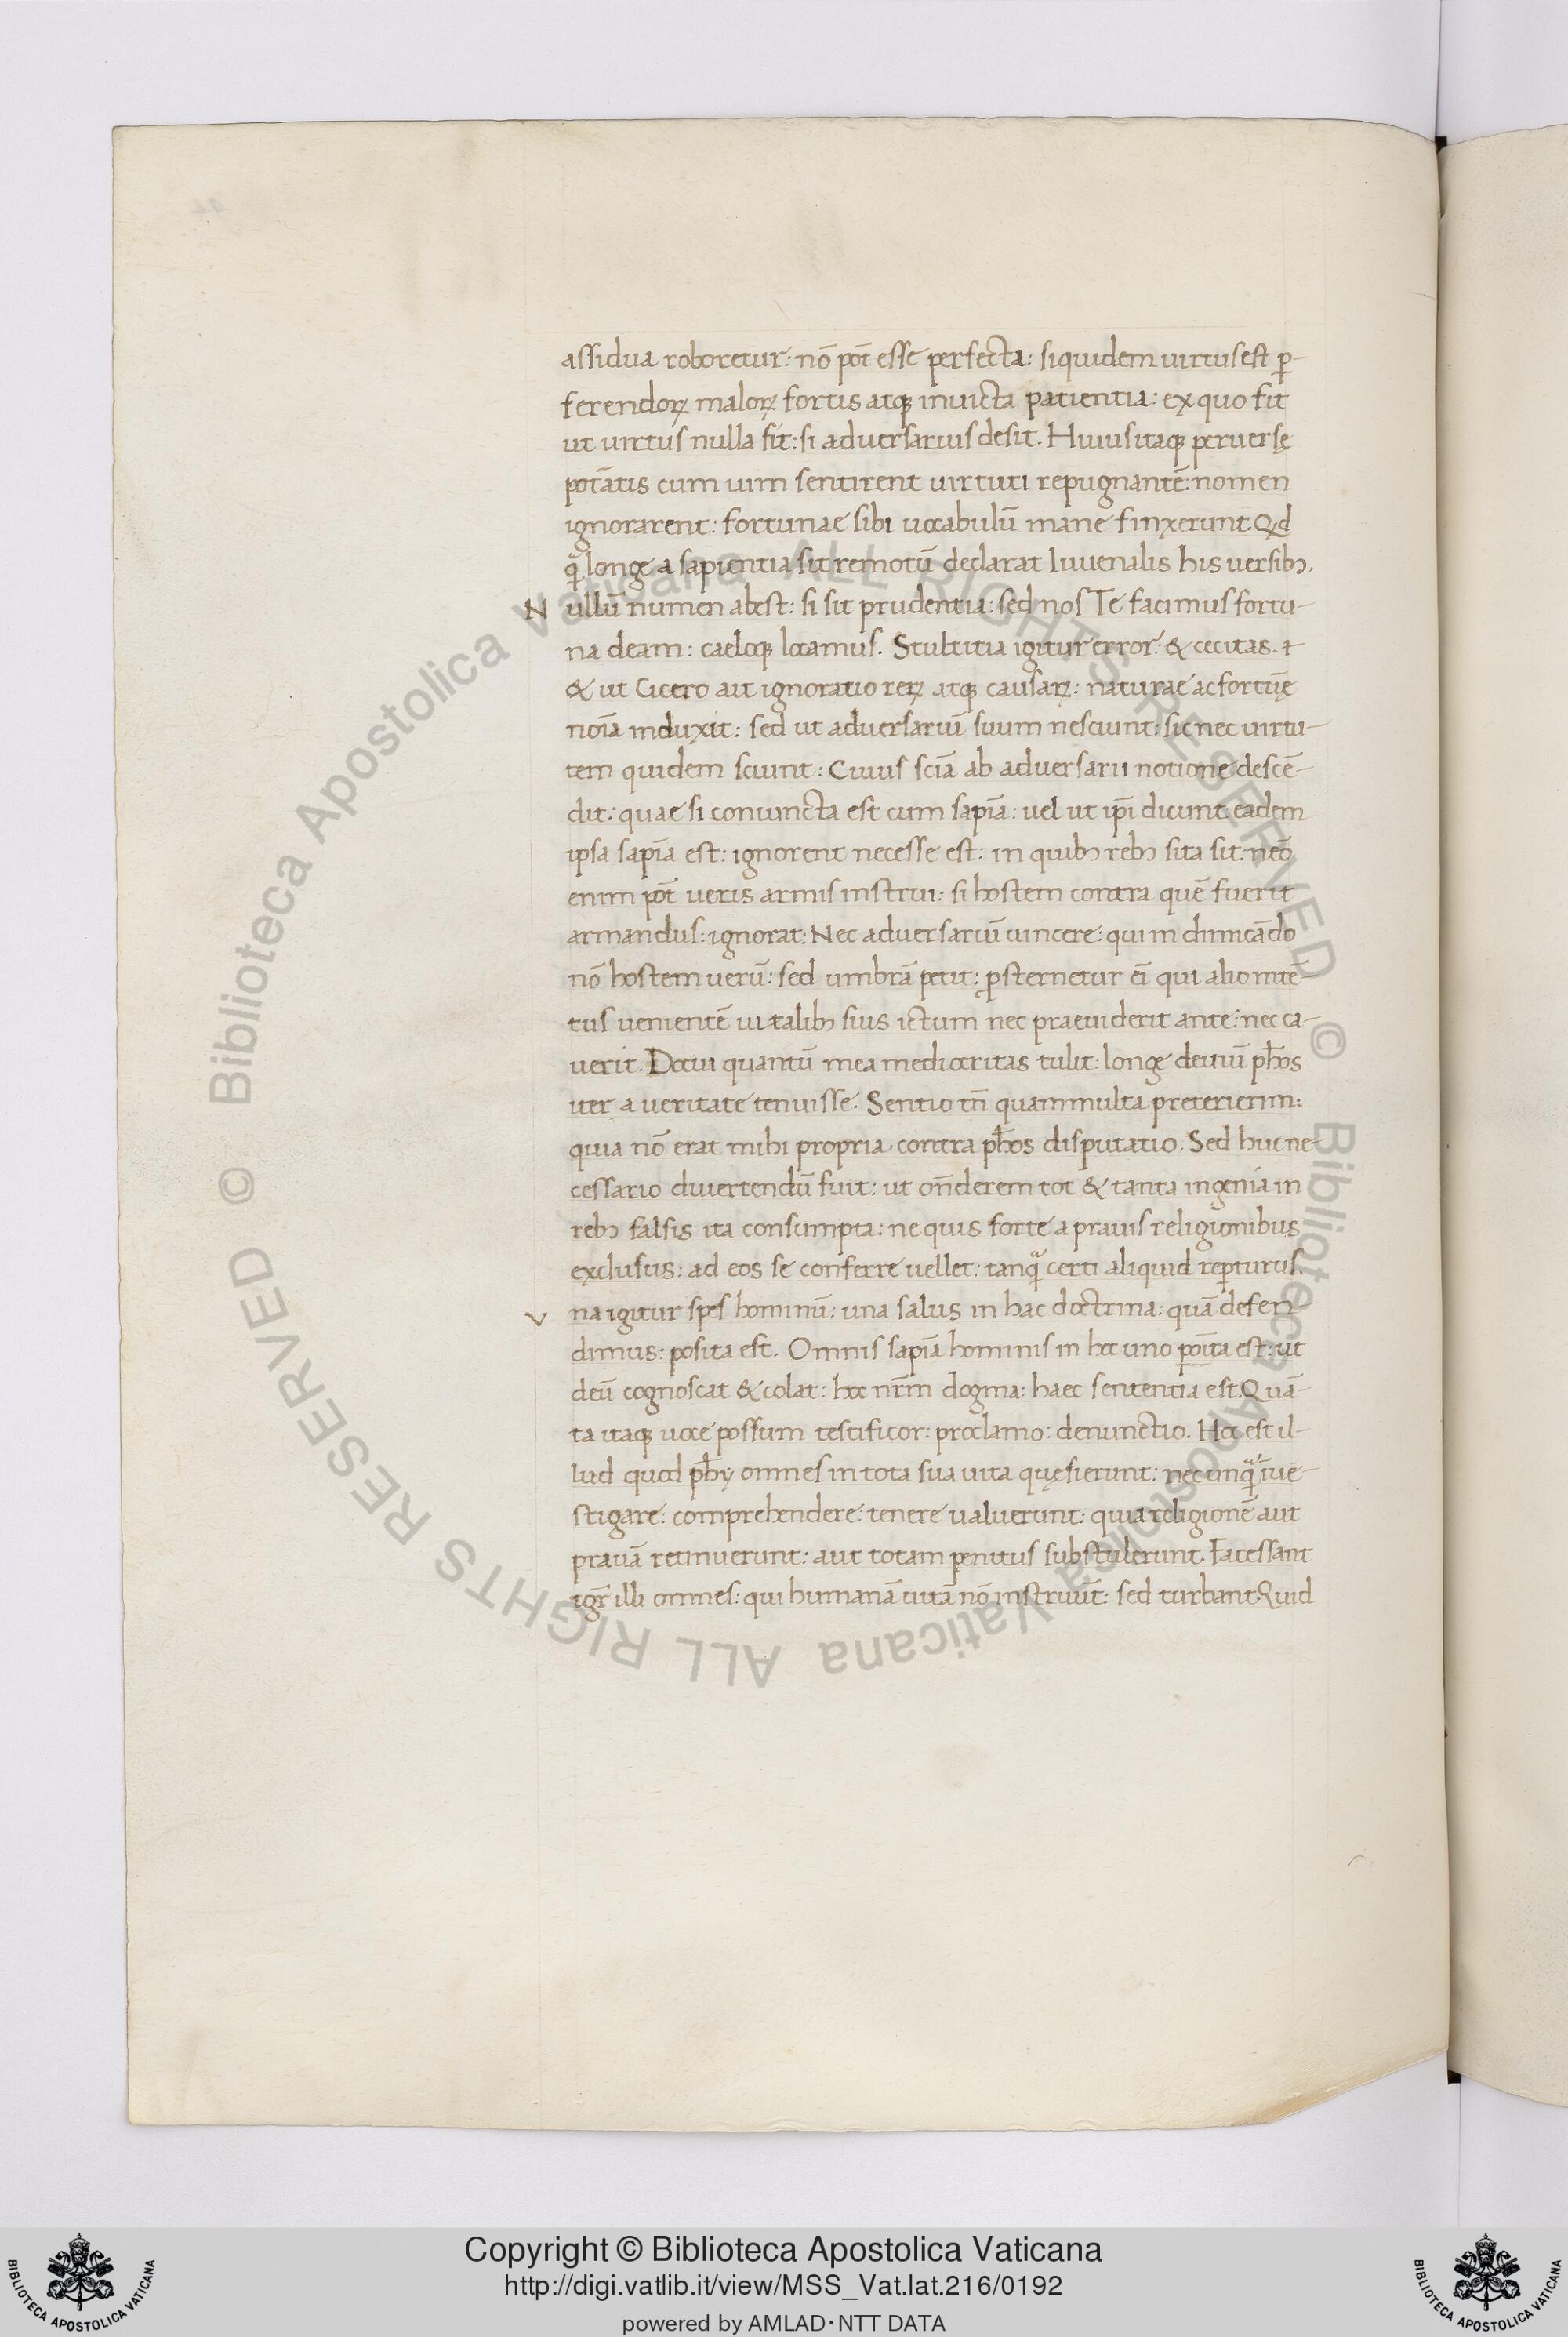 assidua roboretur: nō pōt esse perfecta: siquidem uirtus est ꝑ-
ferendoꝝ maloꝝ fortis atqꝫ inuicta patientia: ex quo fit
ut uirtus nulla sit: si aduersarius desit. Huius itaqꝫ peruersę
potātis cum uim sentirent uirtuti repugnantē: nomen
ignorarent: fortunae sibi uocabulū inane finxerunt. Qd
longe a sapientia sit remotū declarat Iuuenalis his uersibꝫ.
Nullū numen abest: si sit prudentia: sed nos Te facimus fortu-
na deam: caeloqꝫ locamus. Stultitia igitur error: & cecitas.
& ut Cicero ait ignoratio reꝝ atqꝫ causaꝝ: naturae ac fortūę
noīa induxit: sed ut aduersariū suum nesciunt: sic nec uirtu-
tem quidem sciunt: Cuius scīa ab aduersarii notione descē-
dit: quae si coniuncta est cum sapīa: uel ut ipī dicunt: eadem
ipsa sapīa est: ignorent necesse est: in quibꝫ rebꝫ sita sit: neō
enim pōt ueris armis instrui: si hostem contra quē fuerit
armandus: ignorat: Nec aduersariū uincere: qui in dimicādo
nō hostem uerū: sed umbrā petit: ꝓsternetur eī qui alio intē-
tus uenientē uitalibꝫ suis ictum nec praeuiderit ante: nec ca-
uerit. Docui quantū mea mediocritas tulit: longe deuiū ph̄os
iter a ueritate tenuisse. Sentio tn̄ quam multa preterierim:
quia nō erat mihi propria contra ph̄os disputatio. Sed huc ne-
cessario diuertendū fuit: ut on̄derem tot & tanta ingenia in
rebꝫ falsis ita consumpta: ne quis forte a prauis religionibus
exclusus: ad eos se conferre uellet: tanq̄ certi aliquid reꝑturus.
Vna igitur spes hominū: una salus in hac doctrina: quā defen-
dimus: posita est. Omnis sapīa hominis in hoc uno poīta est: ut
deū cognoscat & colat: hoc nr̄m dogma: haec sententia est. Quā-
ta itaqꝫ uoce possum testificor: proclamo: denunctio. Hoc est il-
lud quod ph̄ij omnes in tota sua uita quęsierunt: nec unq̄ īue-
stigare: comprehendere: tenere ualuerunt: quia religionē aut
prauā retinuerunt: aut totam penitus substulerunt. Facessant
igr̄ illi omnes: qui humanā uitā nō instruūt: sed turbant. Quid
© Biblioteca Apostolica Vaticana ALL RIGHTS RESERVED © Biblioteca Apostolica Vaticana ALL RIGHTS RESERVED
Copyright © Biblioteca Apostolica Vaticana
http://digi.vatlib.it/view/MSS_Vat.lat.216/0192
powered by AMLAD·NTT DATA
BIBLIOTECA APOSTOLICA VATICANA
BIBLIOTECA APOSTOLICA VATICANA